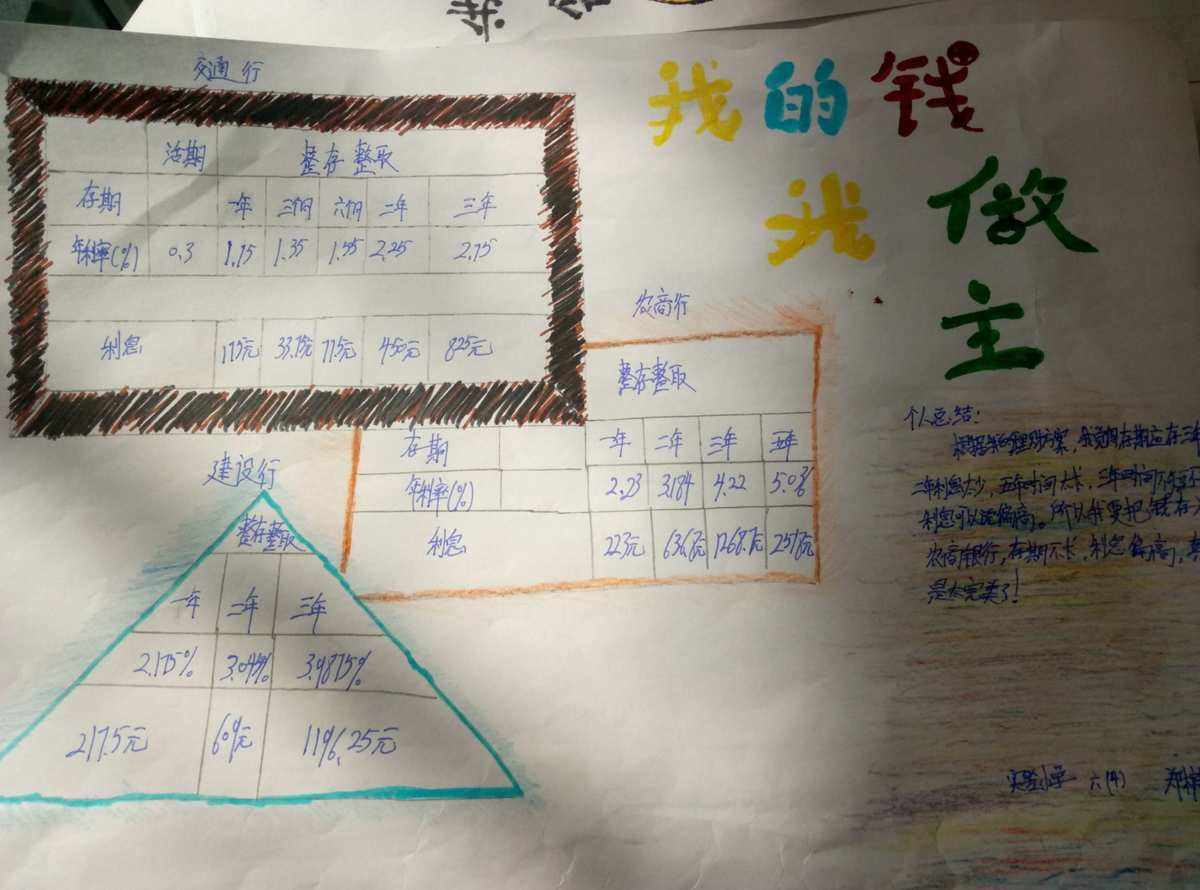 我的钱
我做
主
交通行
活期 整存整取
存期 一年 三个月 六个月 二年 三年
年利率(%) 0.3 1.75 1.35 1.55 2.25 2.75
利息 175元 33.75元 77.5元 450元 825元
农商行
整存整取
存期 一年 二年 三年 五年
年利率(%) 2.23 3.184 4.22
利息 223元
建设行
整存整取
一年 二年 三年
2.175% 3.045% 3.9875%
217.5元 609元 1196.25元
个人总结:
存期应在三年
二年利息太少,五年时间太长,三年时间
利息可以说偏高。所以我要把钱存
农商银行,存期不长,利息偏高,
是太完美了!
实验小学 六(4)